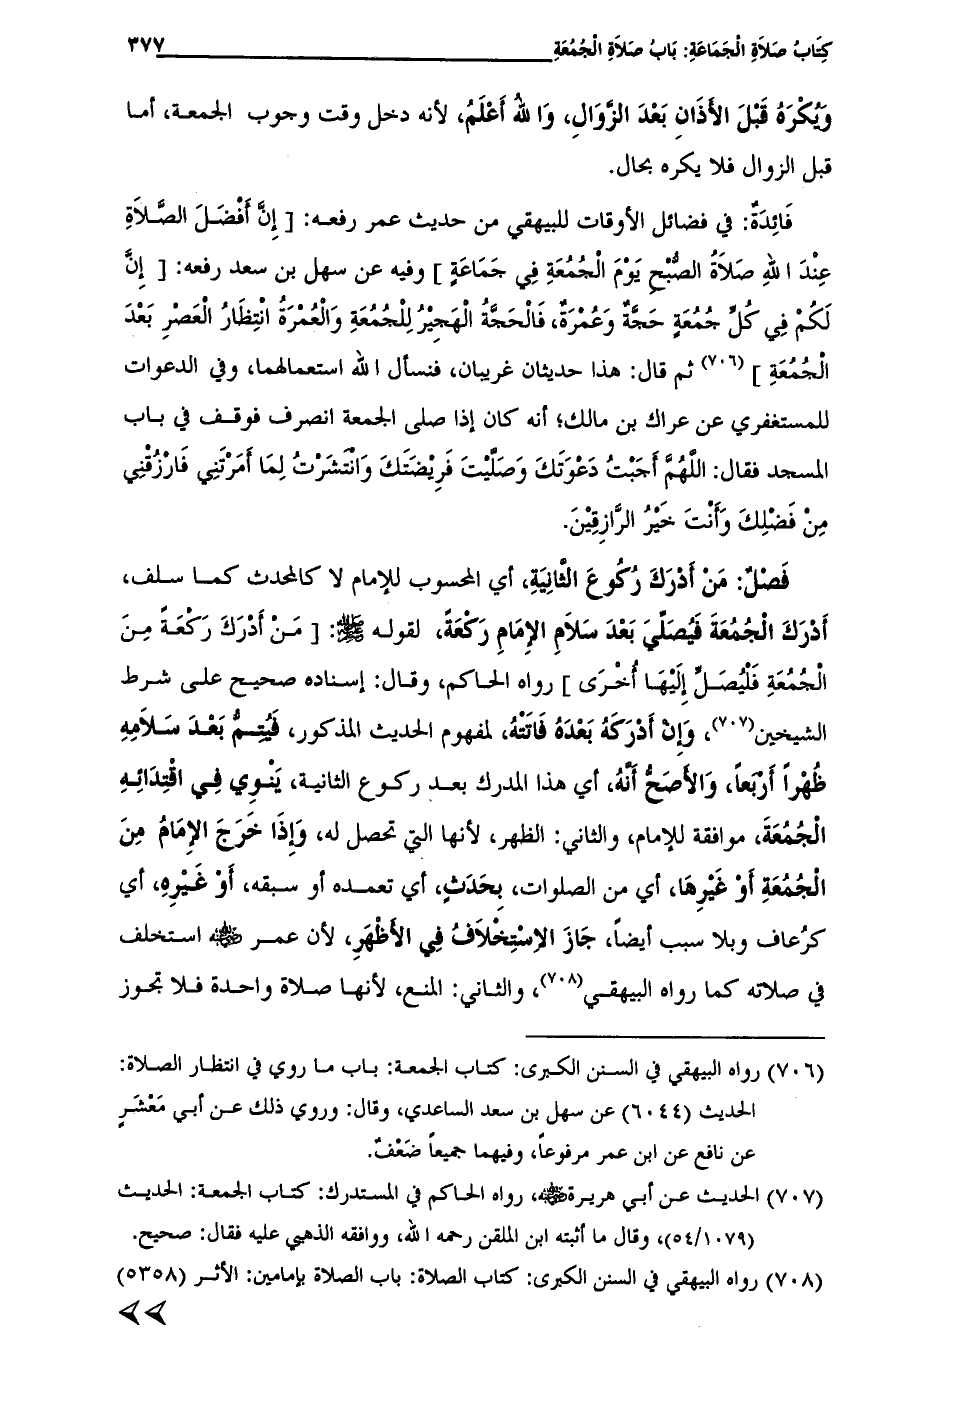 كِتَابُ صَلاَةِ الْجَمَاعَةِ: بَابُ صَلاَةِ الْجُمُعَةِ ٣٧٧
وَيُكْرَهُ قَبْلَ الأَذَانِ بَعْدَ الزَّوَالِ، وَا للهُ أَعْلَمُ، لأنه دخل وقت وجوب الجمعة، أما
قبل الزوال فلا يكره بحال.
فَائِدَةٌ: في فضائل الأوقات للبيهقي من حديث عمر رفعه: [ إِنَّ أَفْضَلَ الصَّلاَةِ
عِنْدَ ا للهِ صَلاَةُ الصُّبْحِ يَوْمَ الْجُمُعَةِ فِي جَمَاعَةٍ ] وفيه عن سهل بن سعد رفعه: [ إِنَّ
لَكُمْ فِي كُلِّ جُمُعَةٍ حَجَّةٌ وَعُمْرَةٌ، فَالْحَجَّةُ الْهَجِيْرُ لِلْجُمُعَةِ وَالْعُمْرَةُ انْتِظَارُ الْعَصْرِ بَعْدَ
الْجُمُعَةِ ] (٧٠٦) ثم قال: هذا حديثان غريبان، فنسأل ا لله استعمالهما، وفي الدعوات
للمستغفري عن عراك بن مالك؛ أنه كان إذا صلى الجمعة انصرف فوقف في باب
المسجد فقال: اللَّهُمَّ أَجَبْتُ دَعْوَتَكَ وَصَلَّيْتَ فَرِيْضَتَكَ وَانْتَشَرْتُ لِمَا أَمَرْتَنِي فَارْزُقْنِي
مِنْ فَضْلِكَ وَأَنْتَ خَيْرُ الرَّازِقِيْنَ.
فَصْلٌ: مَنْ أَدْرَكَ رُكُوعَ الثَّانِيَةِ، أي المحسوب للإمام لا كالمحدث كما سلف،
أَدْرَكَ الْجُمُعَةَ فَيُصَلِّيَ بَعْدَ سَلاَمِ الإِمَامِ رَكْعَةً، لقوله ﷺ: [ مَنْ أَدْرَكَ رَكْعَةً مِنَ
الْجُمُعَةِ فَلْيُصَلِّ إِلَيْهَا أُخْرَى ] رواه الحاكم، وقال: إسناده صحيح على شرط
الشيخين(٧٠٧)، وَإِنْ أَدْرَكَهُ بَعْدَهُ فَاتَتْهُ، لمفهوم الحديث المذكور، فَيُتِمُّ بَعْدَ سَلاَمِهِ
ظُهْراً أَرْبَعاً، وَالأَصَحُّ أَنَّهُ، أي هذا المدرك بعد ركوع الثانية، يَنْوِي فِي اقْتِدَائِهِ
الْجُمُعَةَ، موافقة للإمام، والثاني: الظهر، لأنها التي تحصل له، وَإِذَا خَرَجَ الإِمَامُ مِنَ
الْجُمُعَةِ أَوْ غَيْرِهَا، أي من الصلوات، بِحَدَثٍ، أي تعمده أو سبقه، أَوْ غَيْرِهِ، أي
كرُعاف وبلا سبب أيضاً، جَازَ الاِسْتِخْلاَفُ فِي الأَظْهَرِ، لأن عمر ﷺ استخلف
في صلاته كما رواه البيهقي(٧٠٨)، والثاني: المنع، لأنها صلاة واحدة فلا تجوز
(٧٠٦) رواه البيهقي في السنن الكبرى: كتاب الجمعة: باب ما روي في انتظار الصلاة:
الحديث (٦٠٤٤) عن سهل بن سعد الساعدي، وقال: وروي ذلك عن أبي مَعْشَرٍ
عن نافع عن ابن عمر مرفوعاً، وفيهما جميعاً ضَعْفٌ.
(٧٠٧) الحديث عن أبي هريرة﵁، رواه الحاكم في المستدرك: كتاب الجمعة: الحديث
(٥٤/١٠٧٩)، وقال ما أثبته ابن الملقن رحمه ا لله، ووافقه الذهبي عليه فقال: صحيح.
(٧٠٨) رواه البيهقي في السنن الكبرى: كتاب الصلاة: باب الصلاة بإمامين: الأثر (٥٣٥٨)